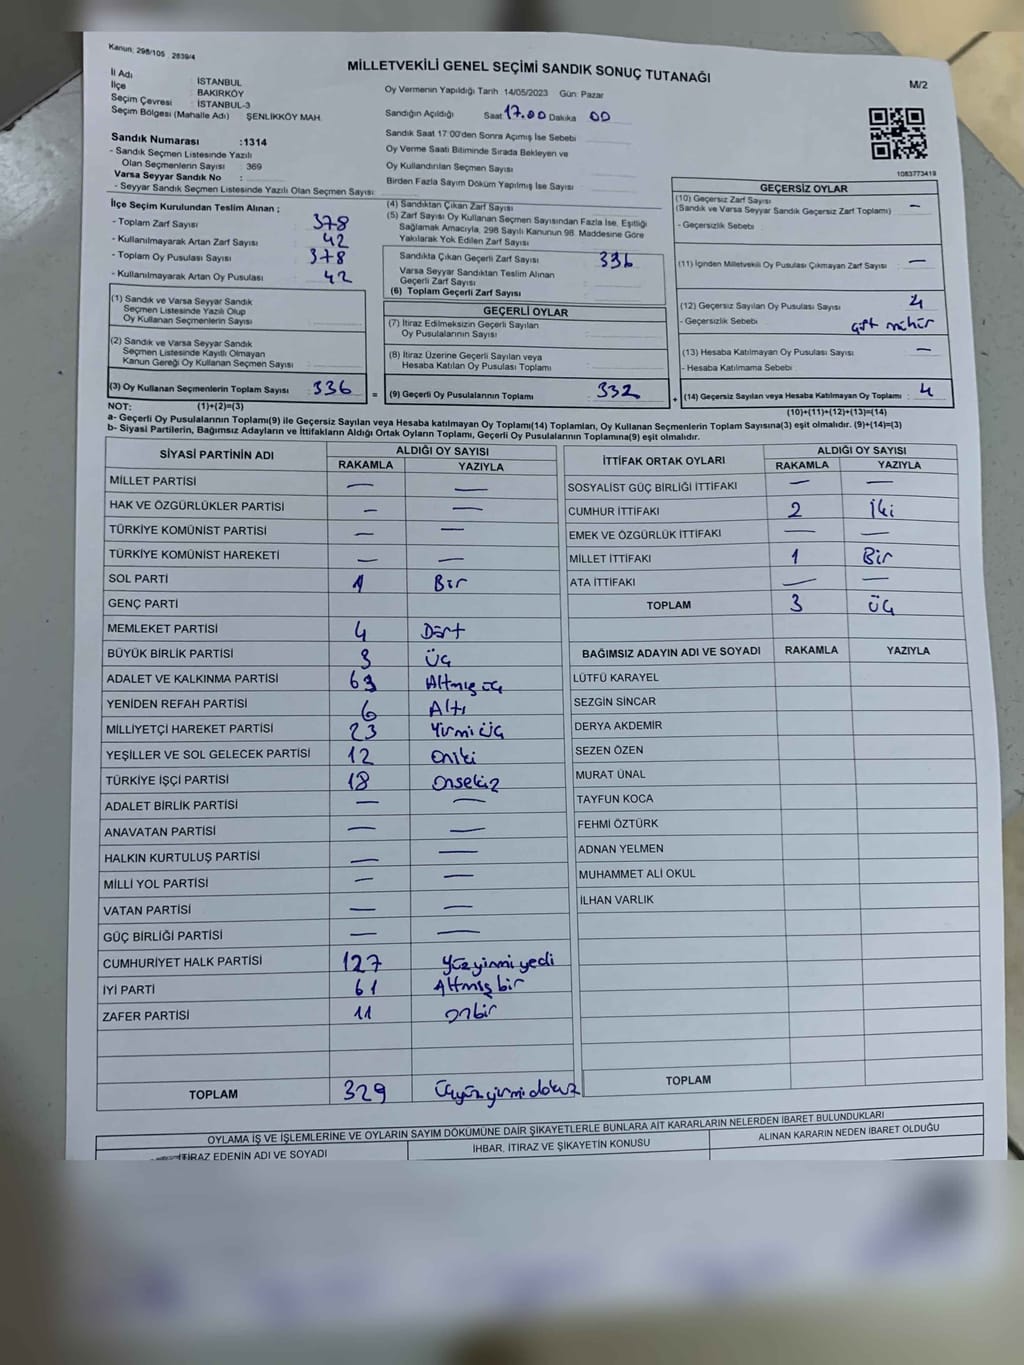 Kanun: 298/105 , 2839/4
MİLLETVEKİLİ GENEL SEÇİMİ SANDIK SONUÇ TUTANAĞI
M/2
İl Adı : İSTANBUL
İlçe : BAKIRKÖY
Seçim Çevresi : İSTANBUL-3
Seçim Bölgesi (Mahalle Adı) : ŞENLİKKÖY MAH.
Sandık Numarası :1314
- Sandık Seçmen Listesinde Yazılı
Olan Seçmenlerin Sayısı : 369
Varsa Seyyar Sandık No :
- Seyyar Sandık Seçmen Listesinde Yazılı Olan Seçmen Sayısı:
Oy Vermenin Yapıldığı Tarih :14/05/2023 Gün: Pazar
Sandığın Açıldığı Saat 17.00 Dakika 00
Sandık Saat 17:00'den Sonra Açımış İse Sebebi
Oy Verme Saati Bitiminde Sırada Bekleyen ve
Oy Kullandırılan Seçmen Sayısı
Birden Fazla Sayım Döküm Yapılmış İse Sayısı
1083773419
İlçe Seçim Kurulundan Teslim Alınan ;
- Toplam Zarf Sayısı : 378
- Kullanılmayarak Artan Zarf Sayısı : 42
- Toplam Oy Pusulası Sayısı : 378
- Kullanılmayarak Artan Oy Pusulası : 42
(1) Sandık ve Varsa Seyyar Sandık
Seçmen Listesinde Yazılı Olup
Oy Kullanan Seçmenlerin Sayısı :
(2) Sandık ve Varsa Seyyar Sandık
Seçmen Listesinde Kayıtlı Olmayan
Kanun Gereği Oy Kullanan Seçmen Sayısı :
(3) Oy Kullanan Seçmenlerin Toplam Sayısı : 336
(4) Sandıktan Çıkan Zarf Sayısı
(5) Zarf Sayısı Oy Kullanan Seçmen Sayısından Fazla İse, Eşitliği
Sağlamak Amacıyla, 298 Sayılı Kanunun 98. Maddesine Göre
Yakılarak Yok Edilen Zarf Sayısı
Sandıkta Çıkan Geçerli Zarf Sayısı : 336
Varsa Seyyar Sandıktan Teslim Alınan
Geçerli Zarf Sayısı
(6) Toplam Geçerli Zarf Sayısı
GEÇERLİ OYLAR
(7) İtiraz Edilmeksizin Geçerli Sayılan
Oy Pusulalarının Sayısı
(8) İtiraz Üzerine Geçerli Sayılan veya
Hesaba Katılan Oy Pusulası Toplamı
= (9) Geçerli Oy Pusulalarının Toplamı : 332
GEÇERSİZ OYLAR
(10) Geçersiz Zarf Sayısı
(Sandık ve Varsa Seyyar Sandık Geçersiz Zarf Toplamı) : —
- Geçersizlik Sebebi
(11) İçinden Milletvekili Oy Pusulası Çıkmayan Zarf Sayısı : —
(12) Geçersiz Sayılan Oy Pusulası Sayısı : 4
- Geçersizlik Sebebi : çift mühür
(13) Hesaba Katılmayan Oy Pusulası Sayısı : —
- Hesaba Katılmama Sebebi
+ (14) Geçersiz Sayılan veya Hesaba Katılmayan Oy Toplamı : 4
NOT: (1)+(2)=(3)
(10)+(11)+(12)+(13)=(14)
a- Geçerli Oy Pusulalarının Toplamı(9) ile Geçersiz Sayılan veya Hesaba katılmayan Oy Toplamı(14) Toplamları, Oy Kullanan Seçmenlerin Toplam Sayısına(3) eşit olmalıdır. (9)+(14)=(3)
b- Siyasi Partilerin, Bağımsız Adayların ve İttifakların Aldığı Ortak Oyların Toplamı, Geçerli Oy Pusulalarının Toplamına(9) eşit olmalıdır.
SİYASİ PARTİNİN ADI ALDIĞI OY SAYISI
RAKAMLA YAZIYLA
MİLLET PARTİSİ — —
HAK VE ÖZGÜRLÜKLER PARTİSİ — —
TÜRKİYE KOMÜNİST PARTİSİ — —
TÜRKİYE KOMÜNİST HAREKETİ — —
SOL PARTİ 1 Bir
GENÇ PARTİ
MEMLEKET PARTİSİ 4 Dört
BÜYÜK BİRLİK PARTİSİ 3 Üç
ADALET VE KALKINMA PARTİSİ 63 Altmış üç
YENİDEN REFAH PARTİSİ 6 Altı
MİLLİYETÇİ HAREKET PARTİSİ 23 Yirmi üç
YEŞİLLER VE SOL GELECEK PARTİSİ 12 Oniki
TÜRKİYE İŞÇİ PARTİSİ 18 Onsekiz
ADALET BİRLİK PARTİSİ — —
ANAVATAN PARTİSİ — —
HALKIN KURTULUŞ PARTİSİ — —
MİLLİ YOL PARTİSİ — —
VATAN PARTİSİ — —
GÜÇ BİRLİĞİ PARTİSİ — —
CUMHURİYET HALK PARTİSİ 127 Yüzyirmi yedi
İYİ PARTİ 61 Altmış bir
ZAFER PARTİSİ 11 onbir
TOPLAM 329 Üçyüzyirmidokuz
İTTİFAK ORTAK OYLARI ALDIĞI OY SAYISI
RAKAMLA YAZIYLA
SOSYALİST GÜÇ BİRLİĞİ İTTİFAKI — —
CUMHUR İTTİFAKI 2 İki
EMEK VE ÖZGÜRLÜK İTTİFAKI — —
MİLLET İTTİFAKI 1 Bir
ATA İTTİFAKI — —
TOPLAM 3 Üç
BAĞIMSIZ ADAYIN ADI VE SOYADI RAKAMLA YAZIYLA
LÜTFÜ KARAYEL
SEZGİN SİNCAR
DERYA AKDEMİR
SEZEN ÖZEN
MURAT ÜNAL
TAYFUN KOCA
FEHMİ ÖZTÜRK
ADNAN YELMEN
MUHAMMET ALİ OKUL
İLHAN VARLIK
TOPLAM
OYLAMA İŞ VE İŞLEMLERİNE VE OYLARIN SAYIM DÖKÜMÜNE DAİR ŞİKAYETLERLE BUNLARA AİT KARARLARIN NELERDEN İBARET BULUNDUKLARI
İTİRAZ EDENİN ADI VE SOYADI İHBAR, İTİRAZ VE ŞİKAYETİN KONUSU ALINAN KARARIN NEDEN İBARET OLDUĞU